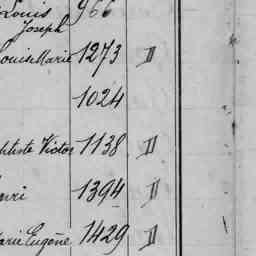 Louis 966
Joseph
Louis Marie 1273 II
1024
ptiste Victor 1138 II
enri 1394 II
Marie Eugène 1429 II